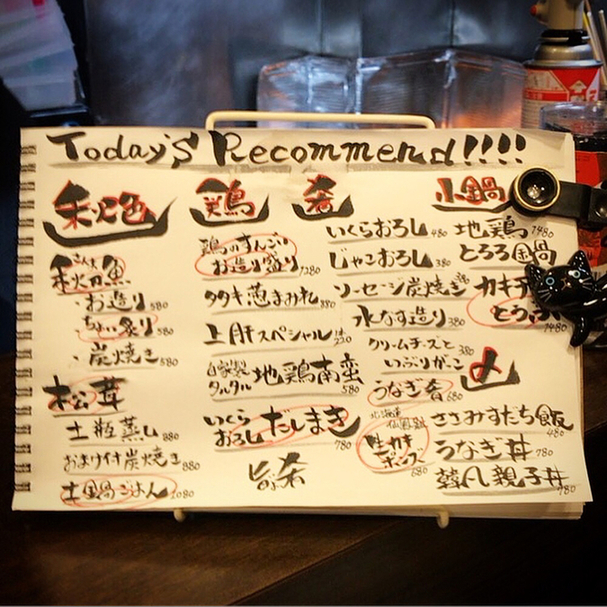 Today's Recommend!!!!
秋色
さんま
秋刀魚
・お造り 580
・ちょい炙り 580
・炭焼き 580
松茸
土瓶蒸し 880
炭焼き 880
土鍋ごはん 1080
鶏
鶏のすんごい
お造り盛り 1280
タタキ葱まみれ 880
上肝スペシャル
自家製
タルタル 地鶏南蛮
いくら
おろし だしまき 780
旨い
肴
いくらおろし 480
じゃこおろし 380
ソーセージ炭焼き
水なす造り 380
クリームチーズと
いぶりがっこ 380
うなぎ肴 680
北海道
仙鳳趾
生ガキ
ポンズ 680
小鍋
地鶏 1480
とろろ鍋
カキ
とうふ 1480
〆
ささみすだち飯 480
うなぎ丼 780
親子丼 780